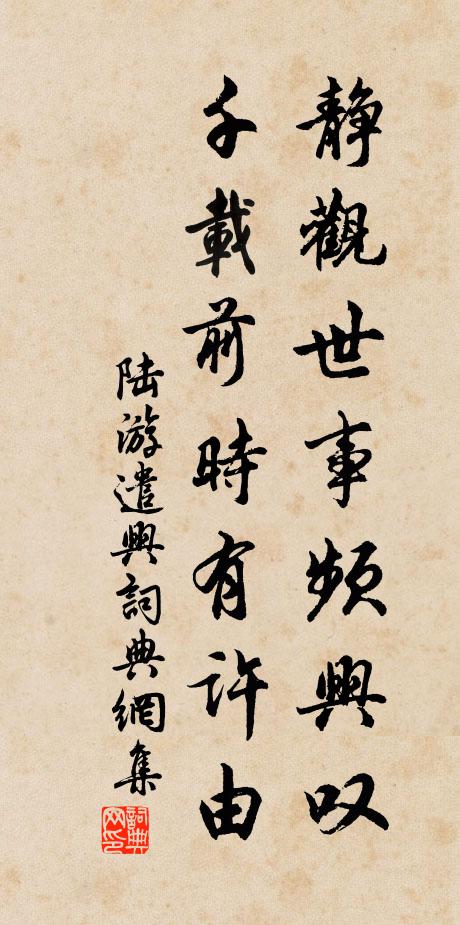 静觀世事頻興叹
千載前時有許由
陆游遣興詞典網集
詞典网印